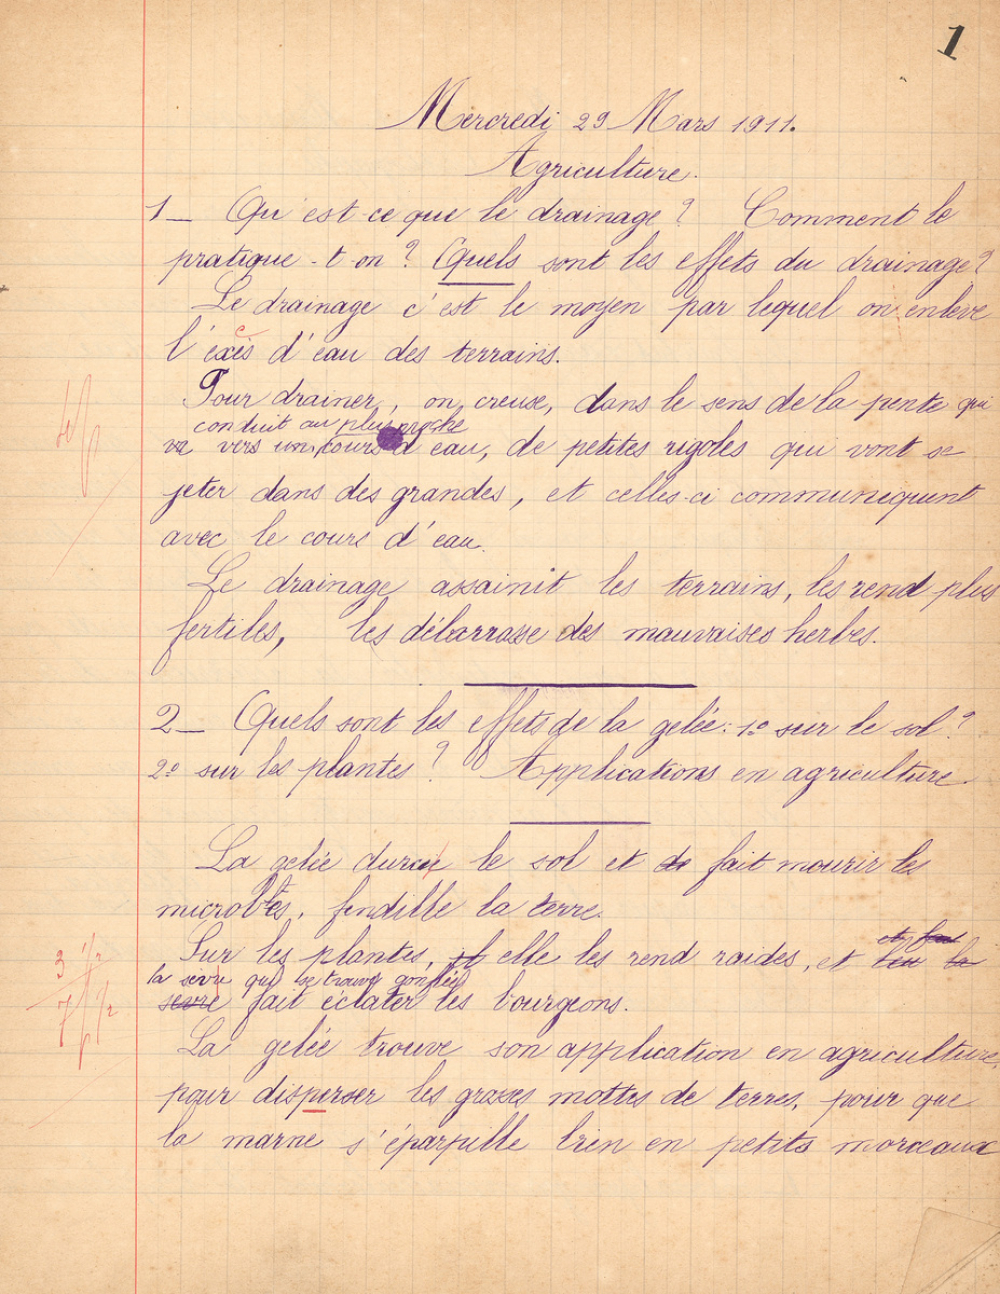 1
Mercredi 29 Mars 1911.
Agriculture.
1_ Qu'est-ce que le drainage? Comment le
pratique-t-on? Quels sont les effets du drainage?
Le drainage c'est le moyen par lequel on enlève
c
l'exès d'eau des terrains.
Pour drainer, on creuse, dans le sens de la pente qui
conduit au plus proche
va vers un cours d'eau, de petites rigoles qui vont se
jeter dans des grandes, et celles-ci communiquent
avec le cours d'eau.
Le drainage assainit les terrains, les rend plus
fertiles, les débarrasse des mauvaises herbes.
2_ Quels sont les effets de la gelée: 1º sur le sol?
2º sur les plantes? Applications en agriculture.
La gelée durcie le sol et de fait mourir les
microbes, fendille la terre.
Sur les plantes, il elle les rend raides, et
la sevre qui se trouve gonflée
3 1/2
sevre fait éclater les bourgeons.
7 1/2
La gelée trouve son application en agriculture,
pour disperser les grosses mottes de terres, pour que
la marne s'éparpille bien en petits morceaux